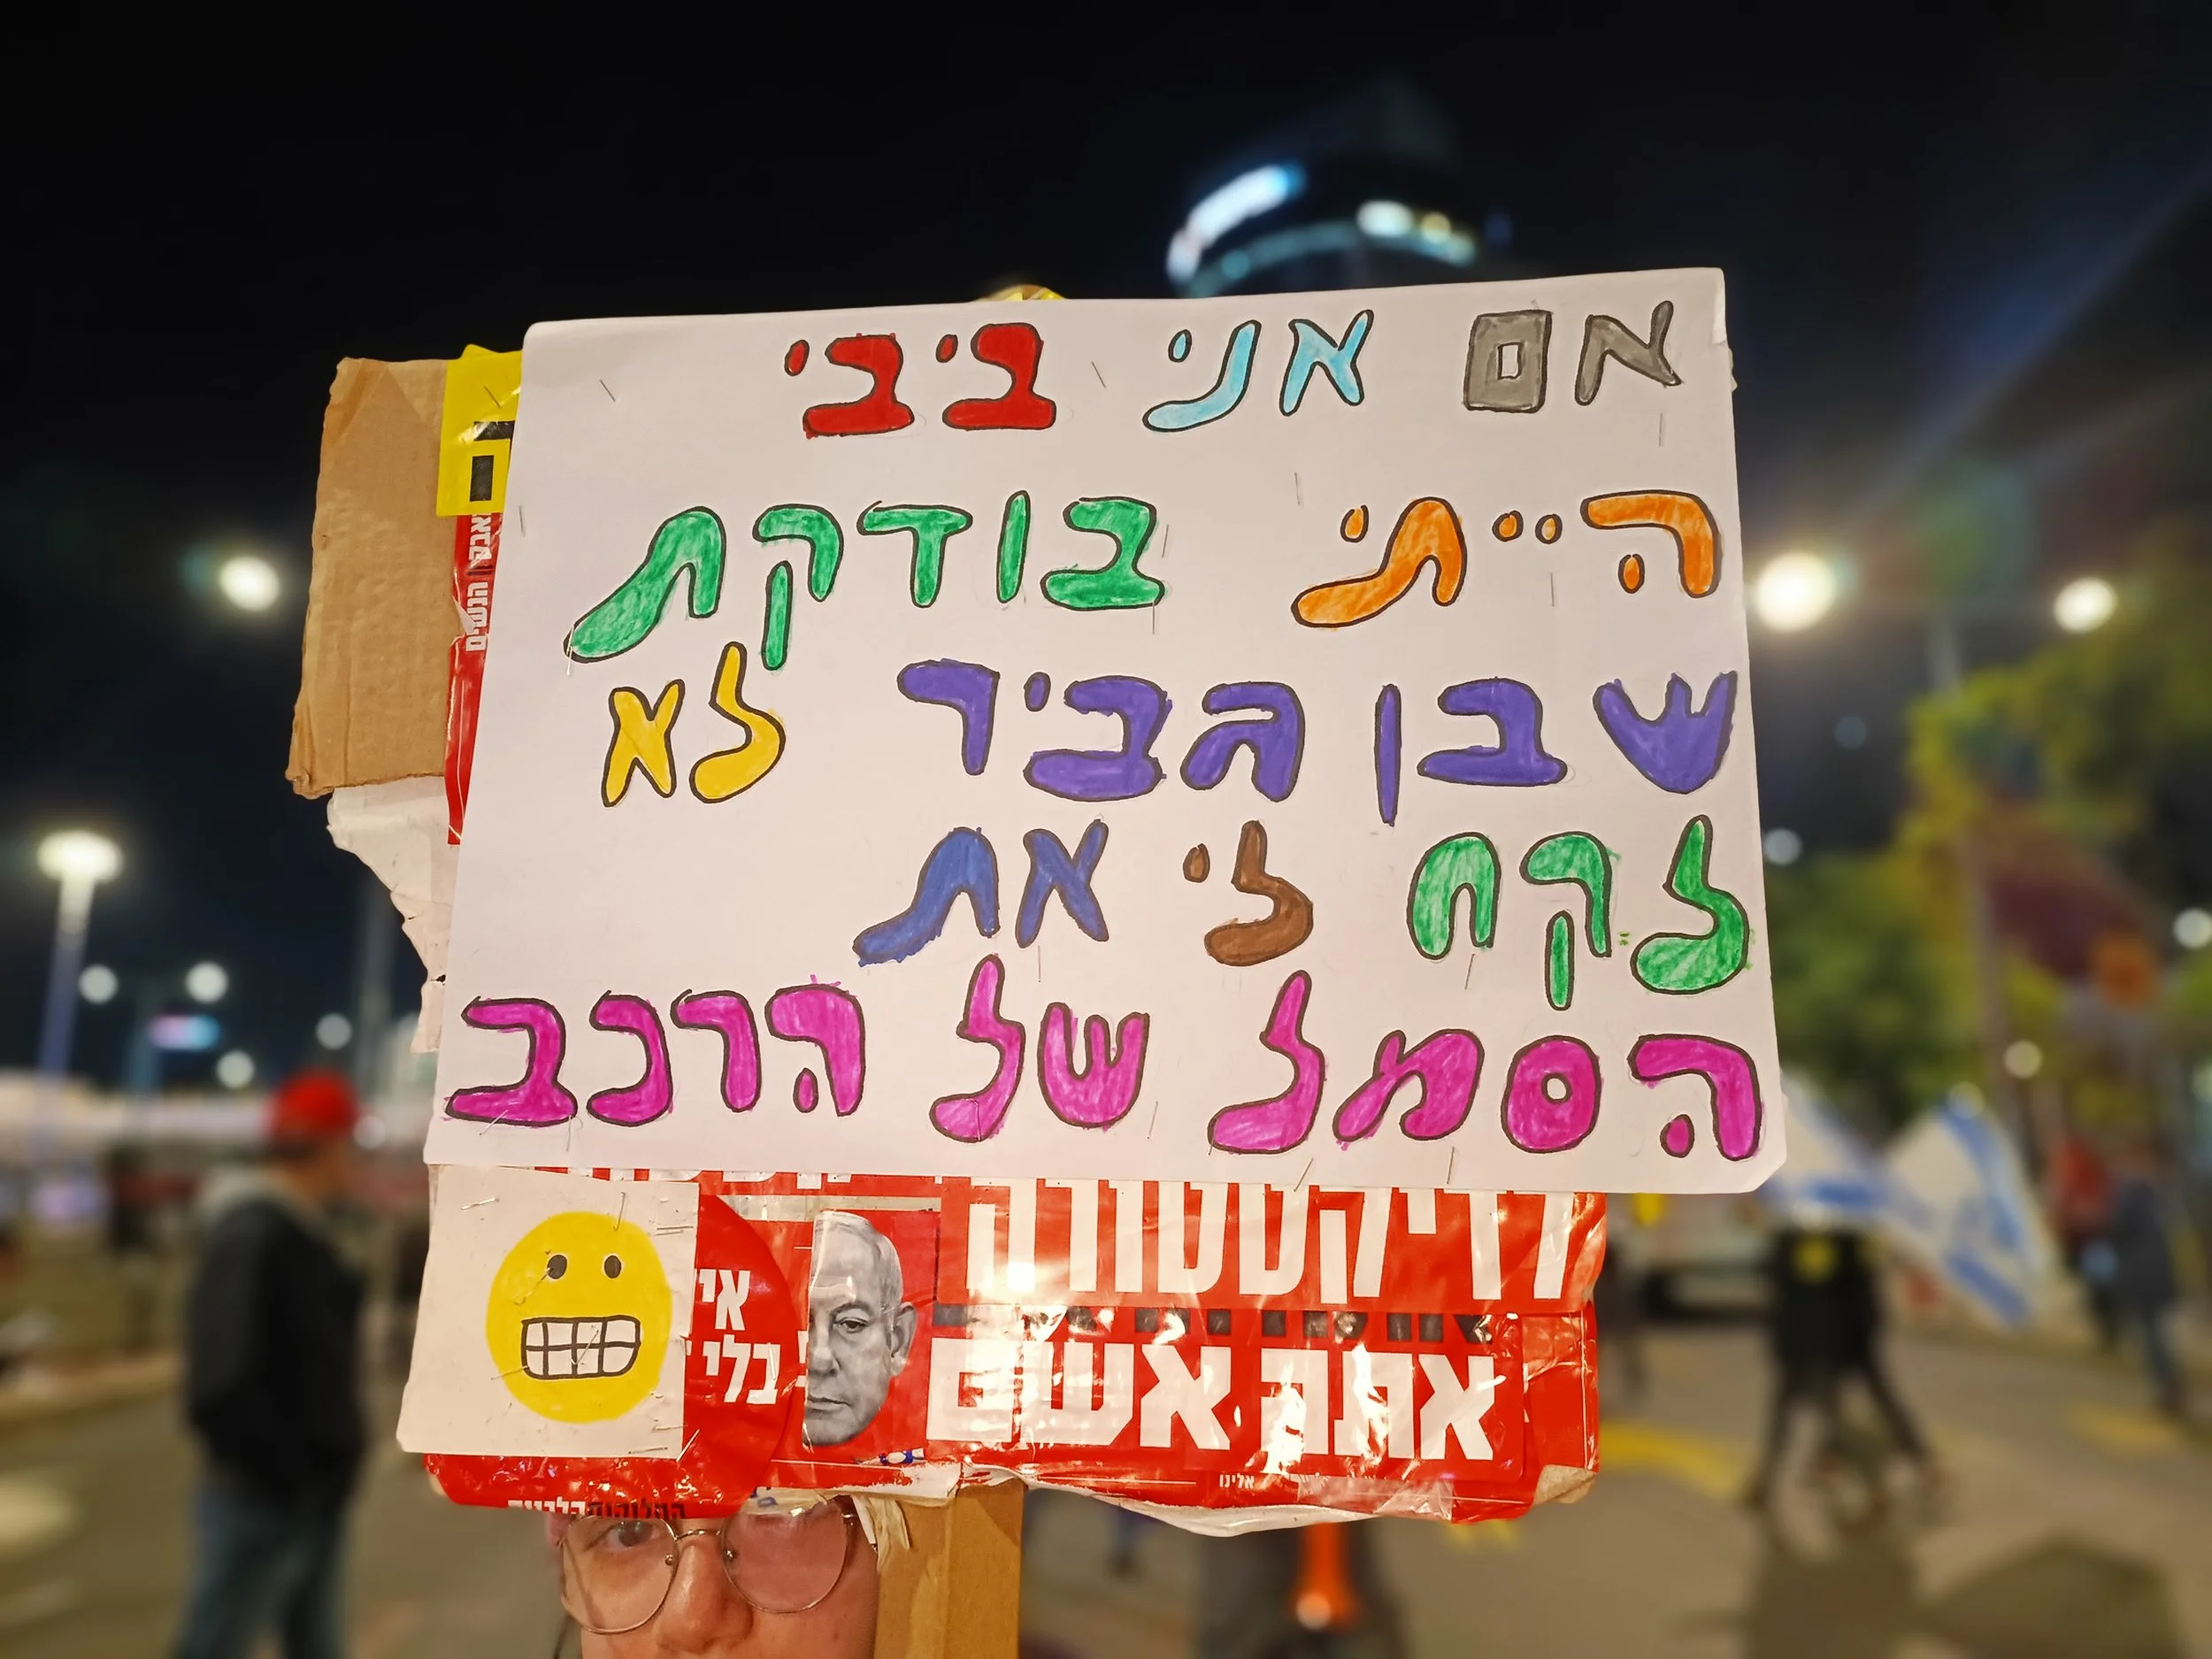 אם אני ביבי
הייתי בודקת
שבן גביר לא
לקח לי את
הסמל של הרכב
אתה אשם
בלי
אלינו
הנשים